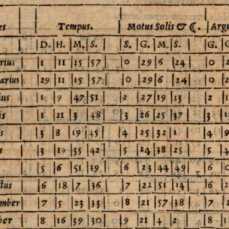 es Tempus. Motus Solis & ☾. Arg
D. H. M. S. S. G. M. S. G. G
rius 1 11 15 57 0 29 6 24 0
arius 29 11 15 57 0 29 6 24 0
ius 1 9 47 51 2 27 19 13 2
is 1 21 3 48 3 26 25 37 3
is 3 8 19 45 4 25 32 1 4
s 3 19 35 42 5 24 38 25 5
s 5 6 51 39 6 23 44 49 6
tus 6 18 7 36 7 22 51 14 6
mber 7 5 23 33 8 21 57 38 7
ber 8 16 39 30 9 21 4 2 8